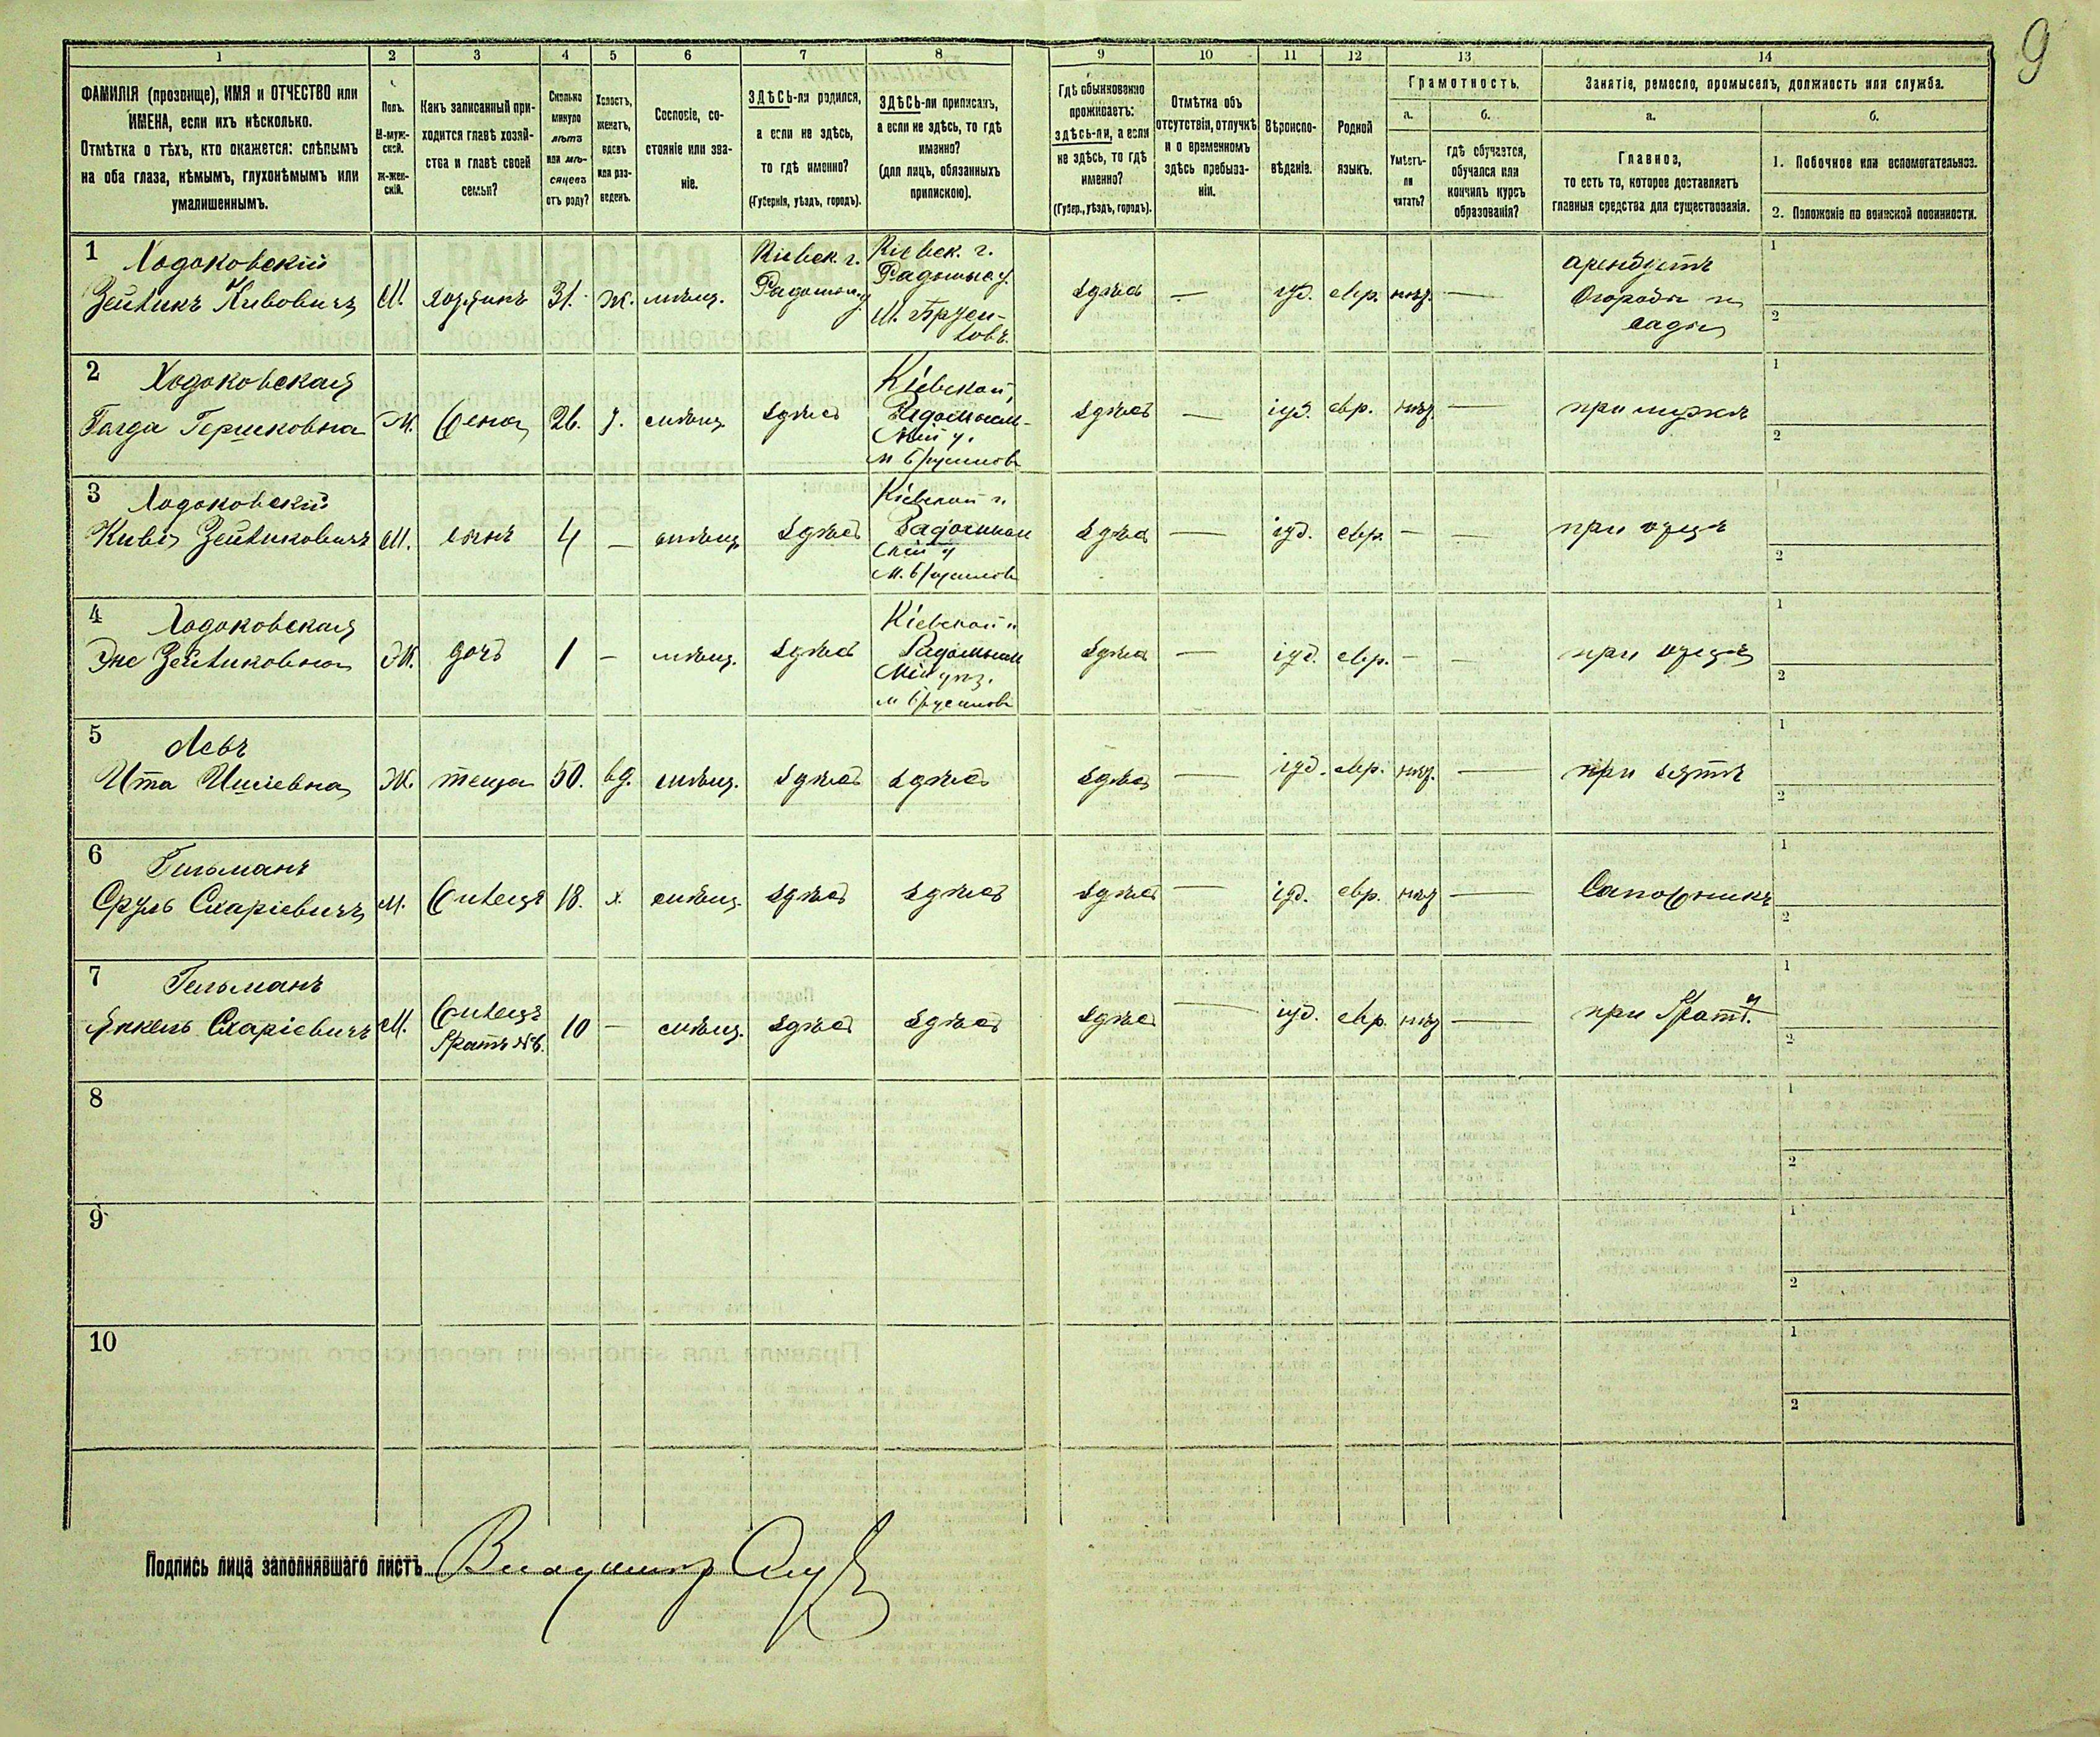 9
1 2 3 4 5 6 7 8 9 10 11 12 13 14
ФАМИЛІЯ (прозвище), ИМЯ и ОТЧЕСТВО или
ИМЕНА, если ихъ нѣсколько.
Отмѣтка о тѣхъ, кто окажется: слѣпымъ
на оба глаза, нѣмымъ, глухонѣмымъ или
умалишеннымъ.
Полъ.
М-муж-
ской.
Ж-жен-
скій.
Какъ записанный при-
ходится главѣ хозяй-
ства и главѣ своей
семьи?
Сколько
минуло
лѣтъ
или мѣ-
сяцевъ
отъ роду?
Холостъ,
женатъ,
вдовъ
или раз-
веденъ.
Сословіе, со-
стояніе или зва-
ніе.
ЗДѢСЬ-ли родился,
а если не здѣсь,
то гдѣ именно?
(Губернія, уѣздъ, городъ).
ЗДѢСЬ-ли приписанъ,
а если не здѣсь, то гдѣ
именно?
(для лицъ, обязанныхъ
припискою).
Гдѣ обыкновенно
проживаетъ:
здѣсь-ли, а если
не здѣсь, то гдѣ
именно?
(Губер., уѣздъ, городъ).
Отмѣтка объ
отсутствіи, отлучкѣ
и о временномъ
здѣсь пребыва-
ніи.
Вѣроиспо-
вѣданіе.
Родной
языкъ.
Грамотность.
а.
Умѣетъ-
ли
читать?
б.
гдѣ обучается,
обучался или
кончилъ курсъ
образованія?
Занятіе, ремесло, промыселъ, должность или служба.
а.
Главное,
то есть то, которое доставляетъ
главныя средства для существованія.
б.
1. Побочное или вспомогательное.
2. Положеніе по воинской повинности.
1 Ходоковскій
Зейликъ Кивовичъ М. хозяинъ 31. ж. мѣщ.
Кіевск. г.
Радомыс. у
Кіевск. г.
Радомыс. у.
М. Бруси-
ловъ.
здѣсь — іуд. евр. нѣт. —
арендуетъ
Огороды и
сады
1
2
2 Ходоковская
Гершковна Ж. жена 26. з. мѣщ. здѣсь
Кіевской,
Радомысль-
скій у.
м Брусиловъ
здѣсь — іуд. евр. нѣт. — при мужѣ
1
2
3 Ходоковскій
Кива Зейликовичъ М. сынъ 4 — мѣщ. здѣсь
Кіевской г.
Радомысль
скій у
м. Брусиловъ
здѣсь — іуд. евр. — — при отцѣ
1
2
4 Ходоковская
Зейликовна Ж. дочь 1 — мѣщ. здѣсь
Кіевской г.
Радомысль
скій уѣз.
м Брусиловъ
здѣсь — іуд. евр. — — при отцѣ
1
2
5 Левъ
Ита Ж. теща 50. вд. мѣщ. здѣсь здѣсь здѣсь — іуд. евр. нѣт. — при зятѣ
1
2
6 Гильманъ
Сруль Схаріевичъ М. жилецъ 18. х. мѣщ. здѣсь здѣсь здѣсь — іуд. евр. нѣт — Сапожникъ
1
2
7 Гельманъ
Янкель Схаріевичъ М. жилецъ
братъ №6. 10 — мѣщ. здѣсь здѣсь здѣсь — іуд. евр. нѣт — при братѣ.
1
2
8
1
2
9
1
2
10
1
2
Подпись лица заполнявшаго листъ